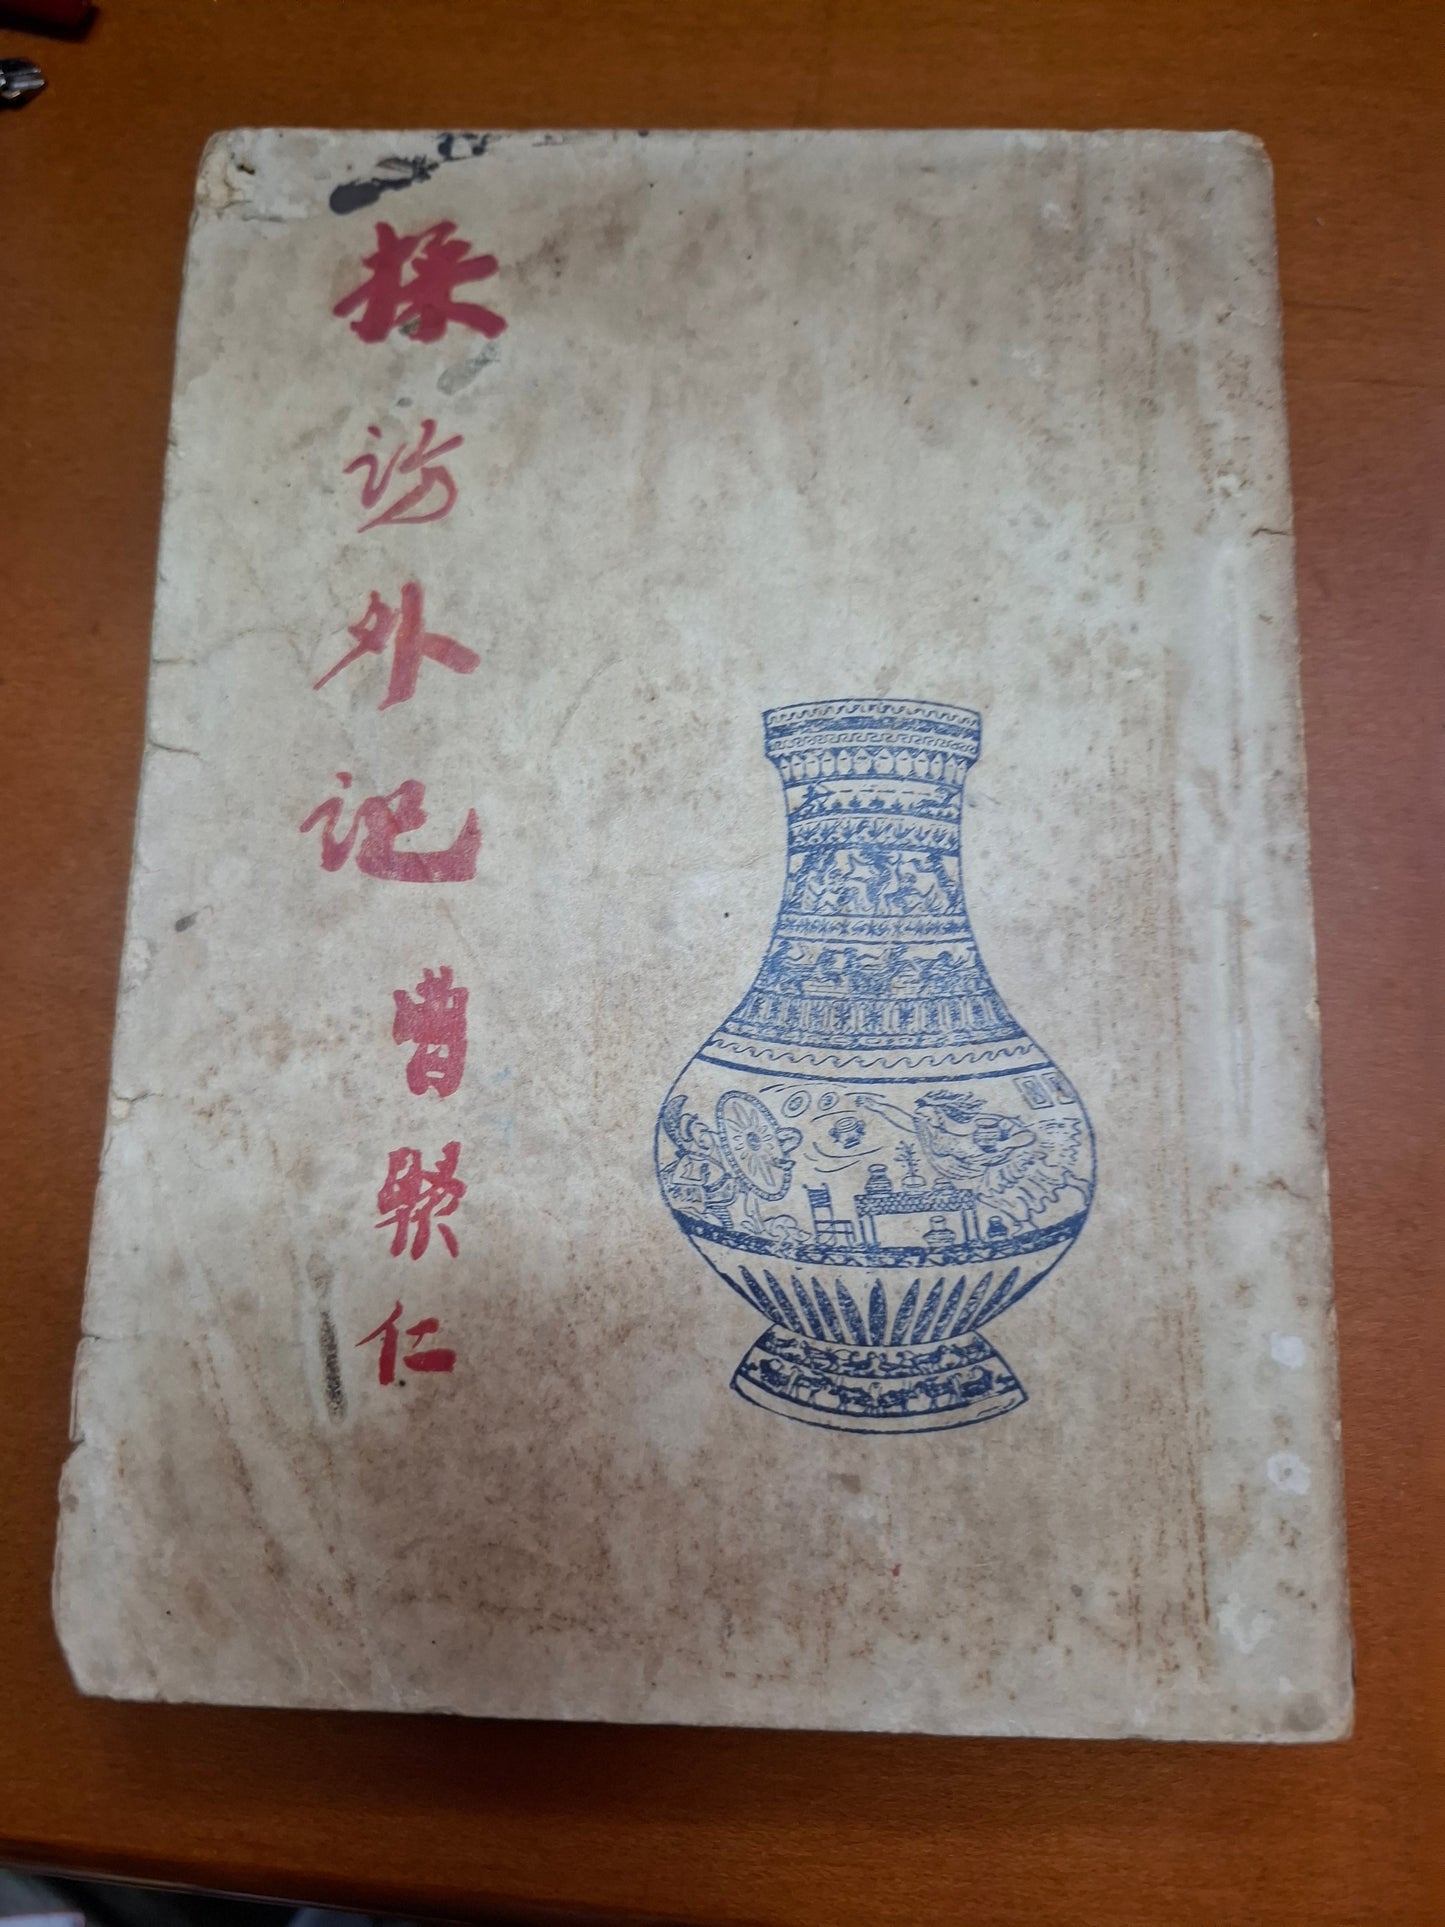 採訪外記
曹聚仁